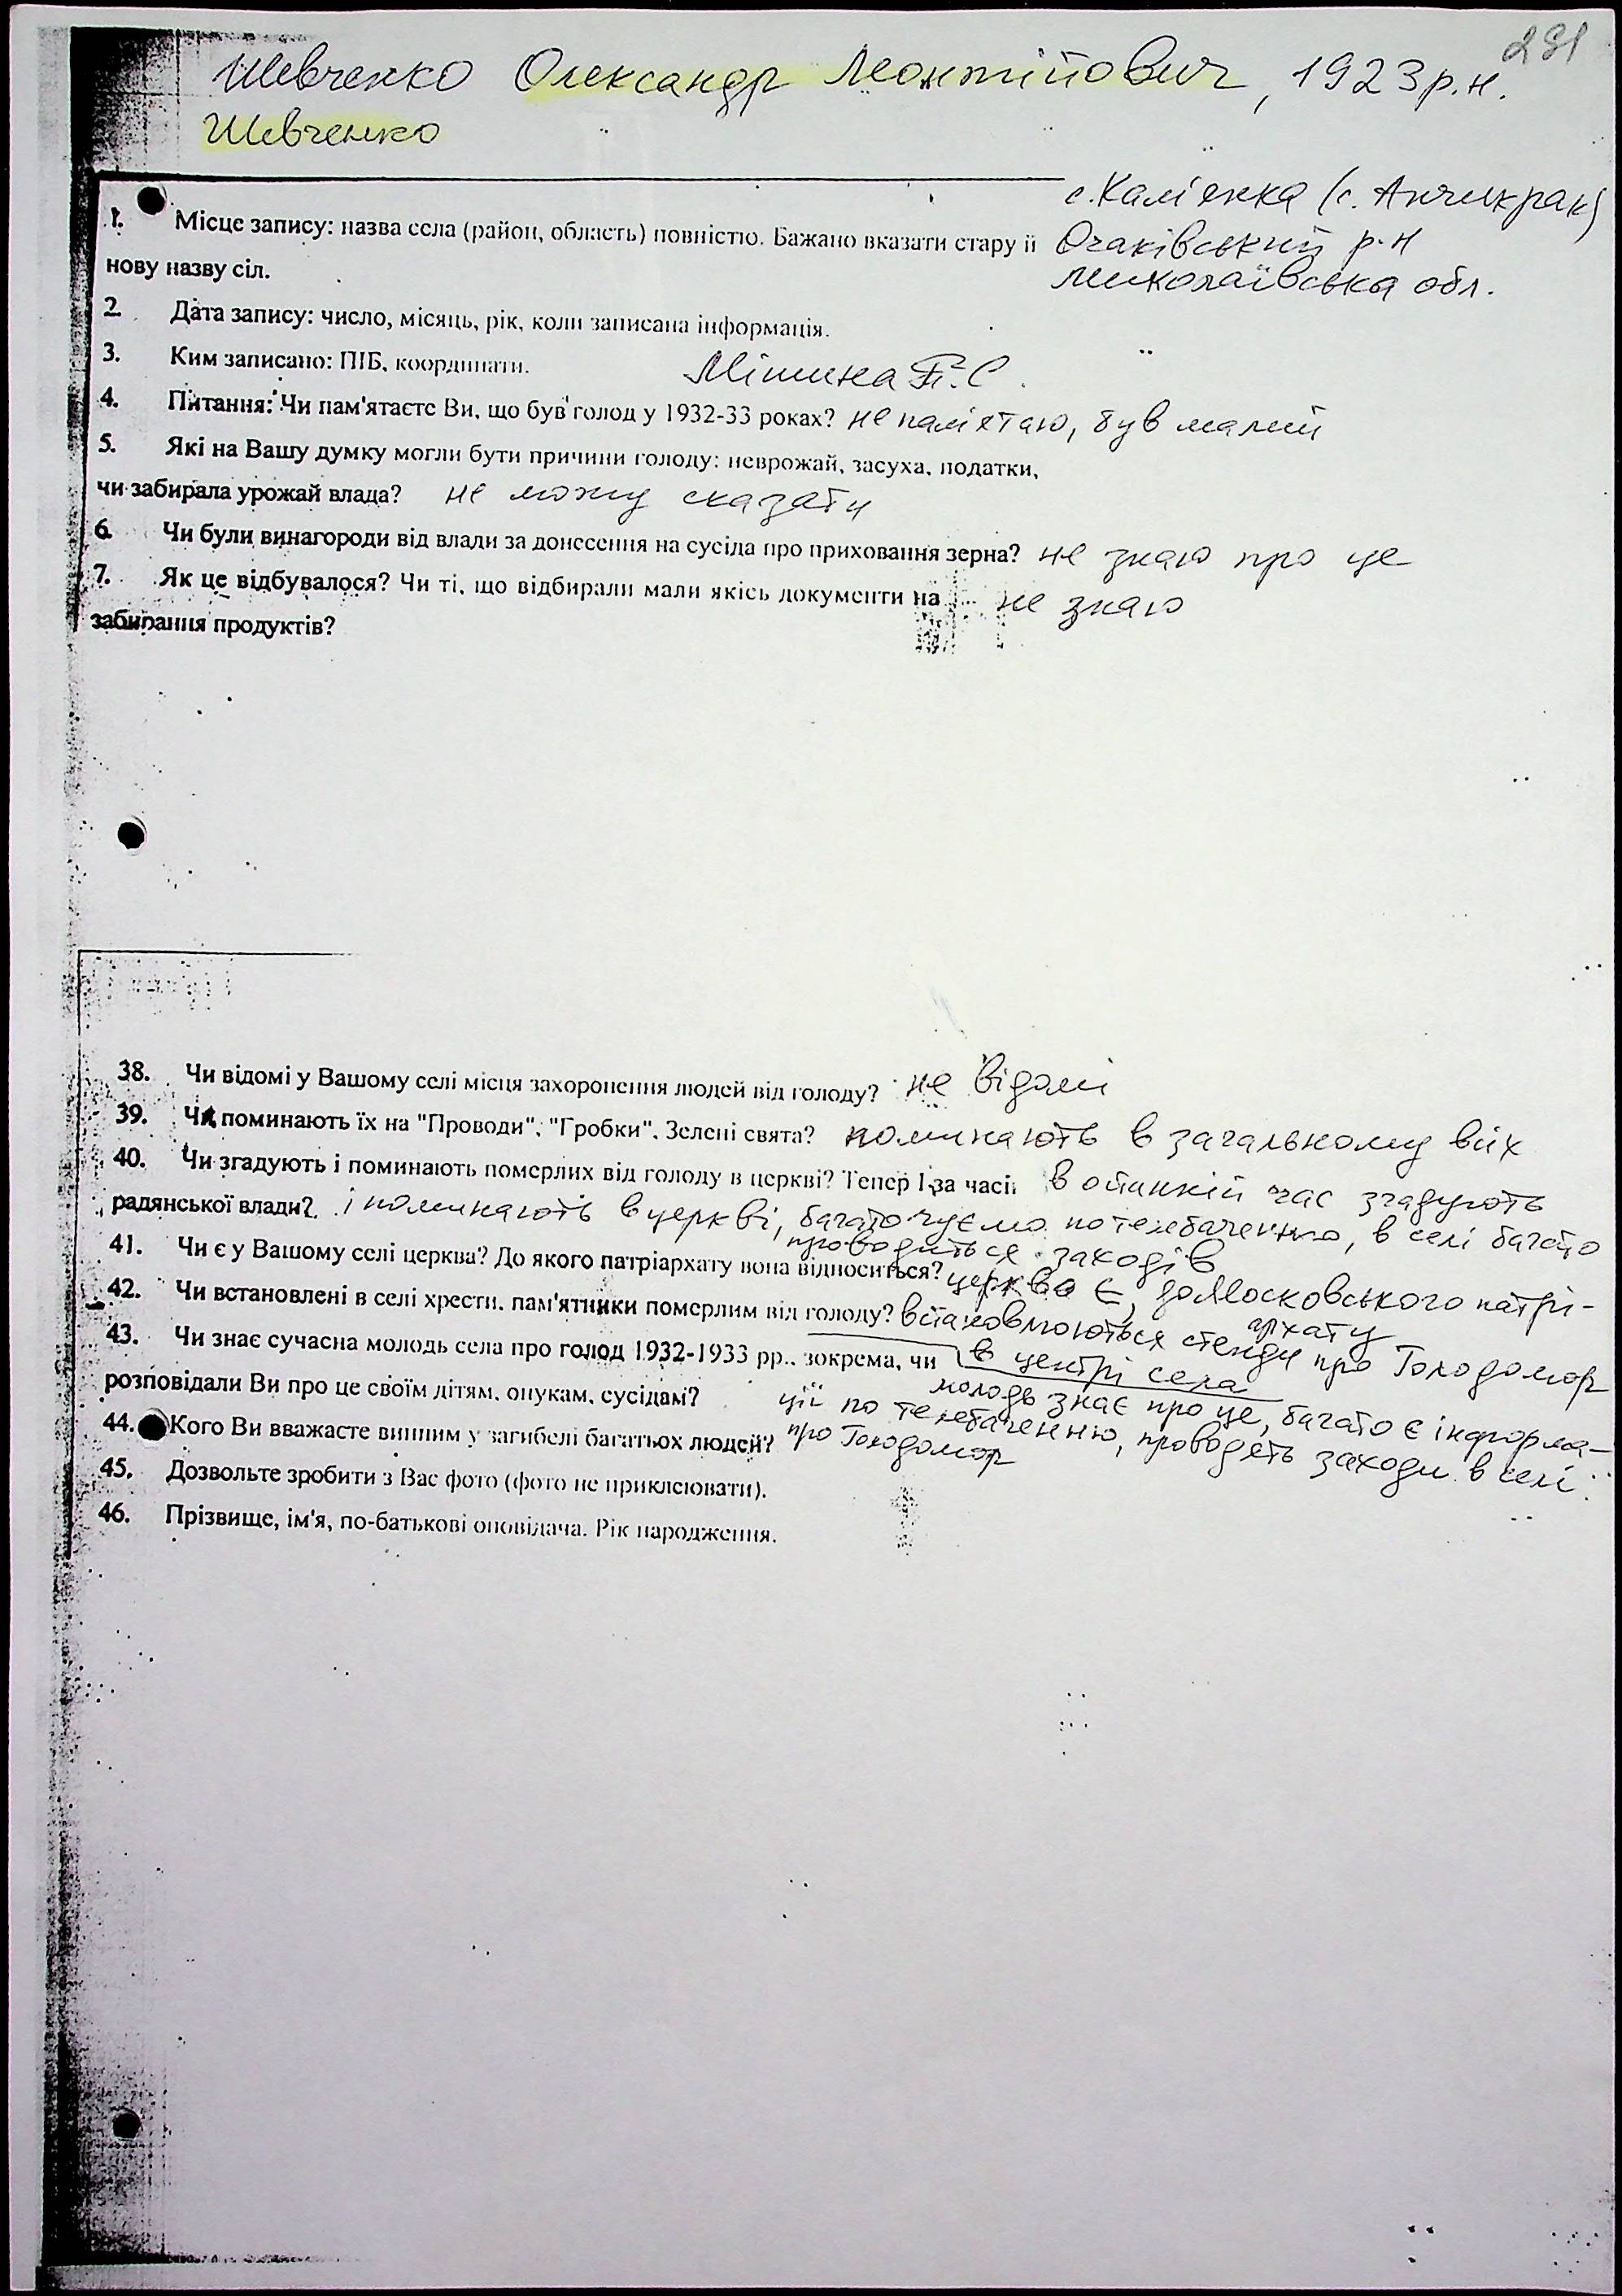 291
Шевченко Олександр Леонтійович, 1923 р.н.
Шевченко
с. Кам'янка (с. Анчикрак)
1. Місце запису: назва села (район, область) повністю. Бажано вказати стару й Очаківський р-н
нову назву сіл. Миколаївська обл.
2. Дата запису: число, місяць, рік, коли записана інформація.
3. Ким записано: ПІБ, координати. Мішина С.
4. Питання: Чи пам'ятаєте Ви, що був голод у 1932-33 роках? не пам'ятаю, був малий
5. Які на Вашу думку могли бути причини голоду: неврожай, засуха, податки,
чи забирала урожай влада? не можу сказати
6. Чи були винагороди від влади за донесення на сусіда про приховання зерна? не знаю про це
7. Як це відбувалося? Чи ті, що відбирали мали якісь документи на не знаю
забирання продуктів?
38. Чи відомі у Вашому селі місця захоронення людей від голоду? не відомі
39. Чи поминають їх на "Проводи", "Гробки", Зелені свята? поминають в загальному всіх
40. Чи згадують і поминають померлих від голоду в церкві? Тепер І за часів в останній час згадують
радянської влади? і поминають в церкві, багато чуємо по телебаченню, в селі багато
проводиться заходів
41. Чи є у Вашому селі церква? До якого патріархату вона відноситься? церква є, до Московського патрі-
архату
42. Чи встановлені в селі хрести, пам'ятники померлим від голоду? встановлюються стенди про Голодомор
в центрі села
43. Чи знає сучасна молодь села про голод 1932-1933 рр., зокрема, чи
розповідали Ви про це своїм дітям, онукам, сусідам? молодь знає про це, багато є інформа-
ції по телебаченню, проводять заходи в селі
44. Кого Ви вважаєте винним у загибелі багатьох людей? про Голодомор
45. Дозвольте зробити з Вас фото (фото не приклеювати).
46. Прізвище, ім'я, по-батькові оповідача. Рік народження.